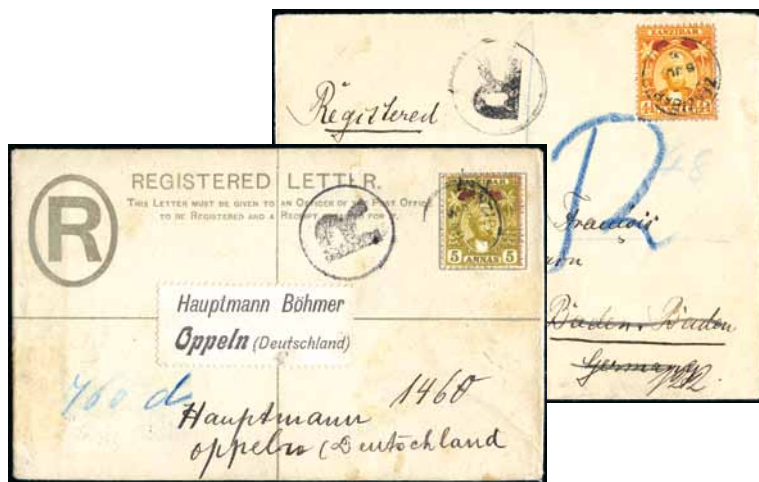 ZANZIBAR
Registered
R
48
R
François
Baden-Baden
Germany
REGISTERED LETTER.
THIS LETTER MUST BE GIVEN TO AN OFFICER OF THE POST OFFICE
TO BE REGISTERED AND A RECEIPT FOR IT.
R
R
5 ANNAS 5
Hauptmann Böhmer
Oppeln (Deutschland)
760 d
1460
Hauptmann
(Deutschland